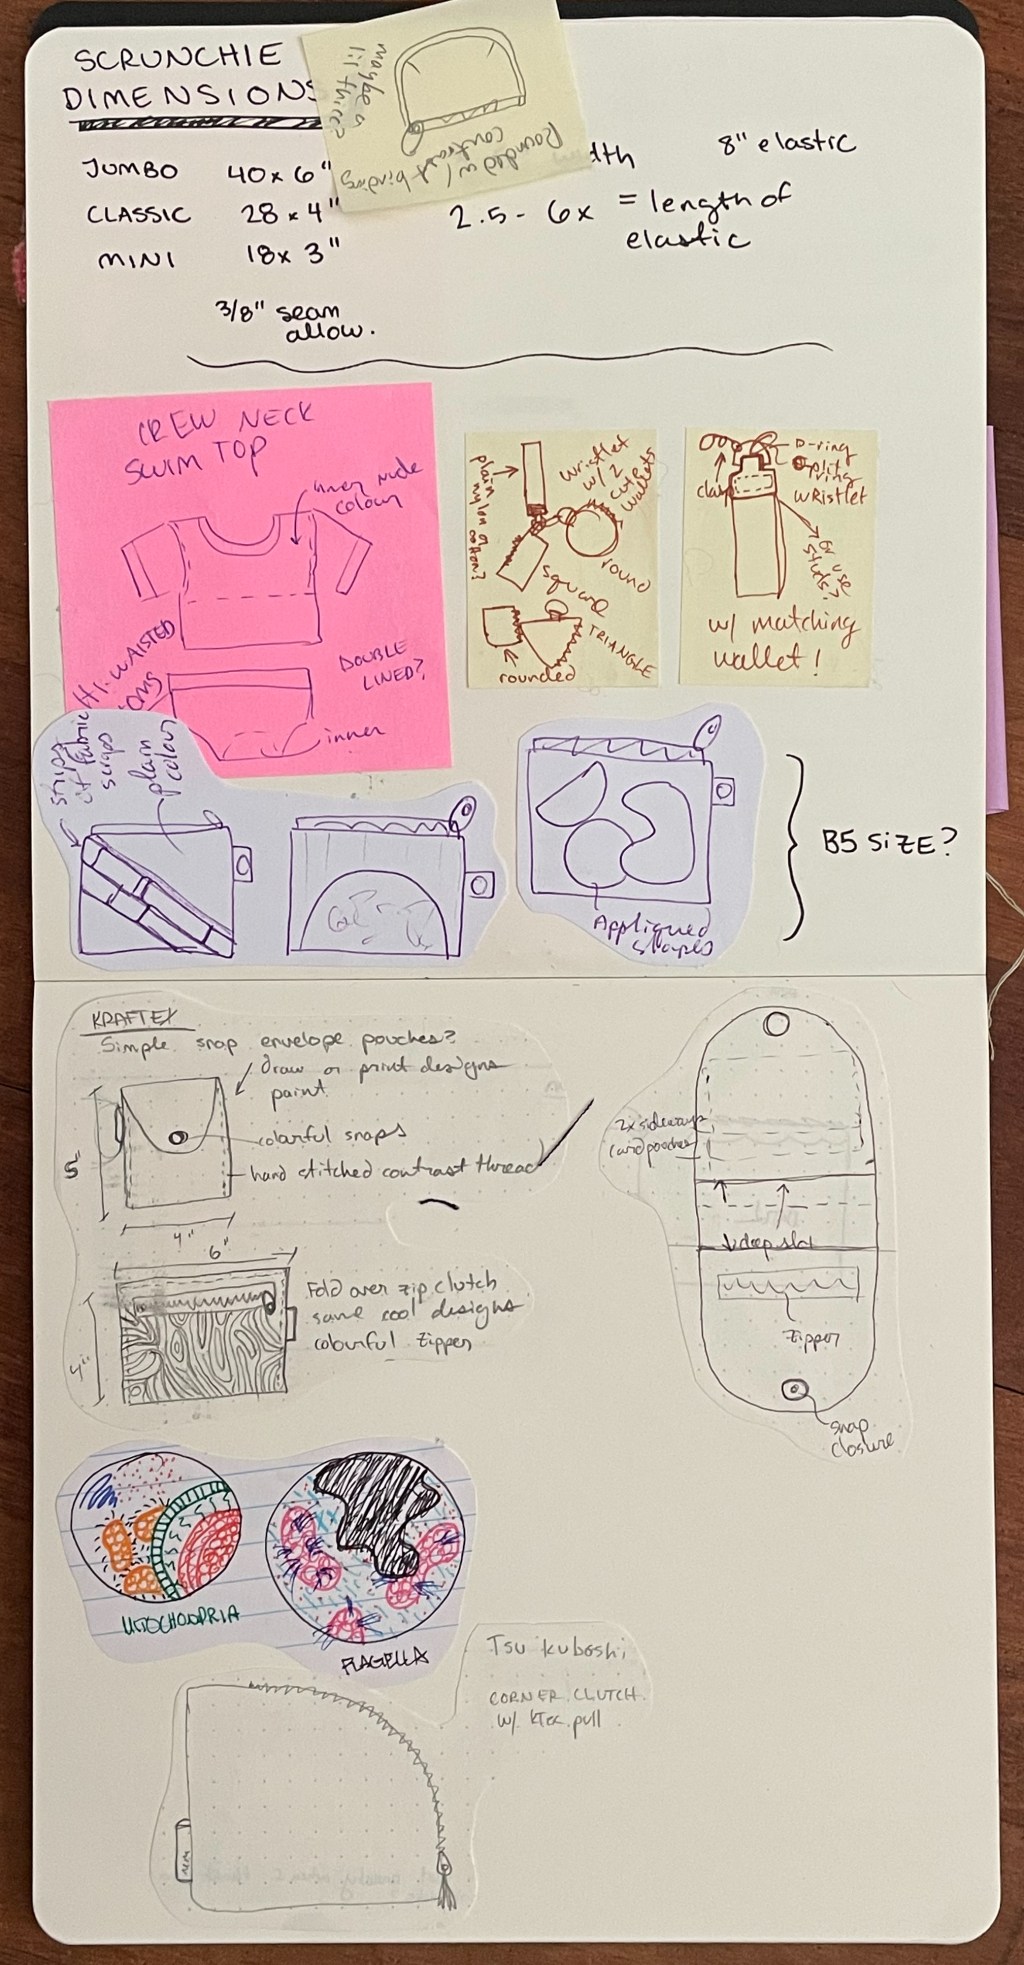 SCRUNCHIE
DIMENSIONS
maybe a
lil thicc?
Rounded w/
contrast binding
JUMBO 40 x 6"
CLASSIC 28 x 4"
MINI 18 x 3"
8" elastic
2.5 - 6x = length of
elastic
3/8" seam
allow.
CREW NECK
SWIM TOP
inner nude
colour
HI-WAISTED
DOUBLE
LINED?
inner
plain
nylon or
cotton?
wristlet
w/ 2
wallets
round
square
TRIANGLE
rounded
D-ring
split
ring
clasp
wRistlet
or use
studs?
w/ matching
wallet!
strips
of fabric
scraps
plain
colour
Appliqued
shapes
B5 SIZE?
KRAFTEX
Simple snap envelope pouches?
Draw or print designs
paint
colourful snaps
hand stitched contrast thread
5"
4"
6"
4"
Fold over zip clutch
same cool designs
colourful zipper
2x sideways
card pouches
1 deep slot
zipper
snap
closure
MITOCHONDRIA
FLAGELLA
Tsukuboshi
CORNER CLUTCH
w/ ktex pull